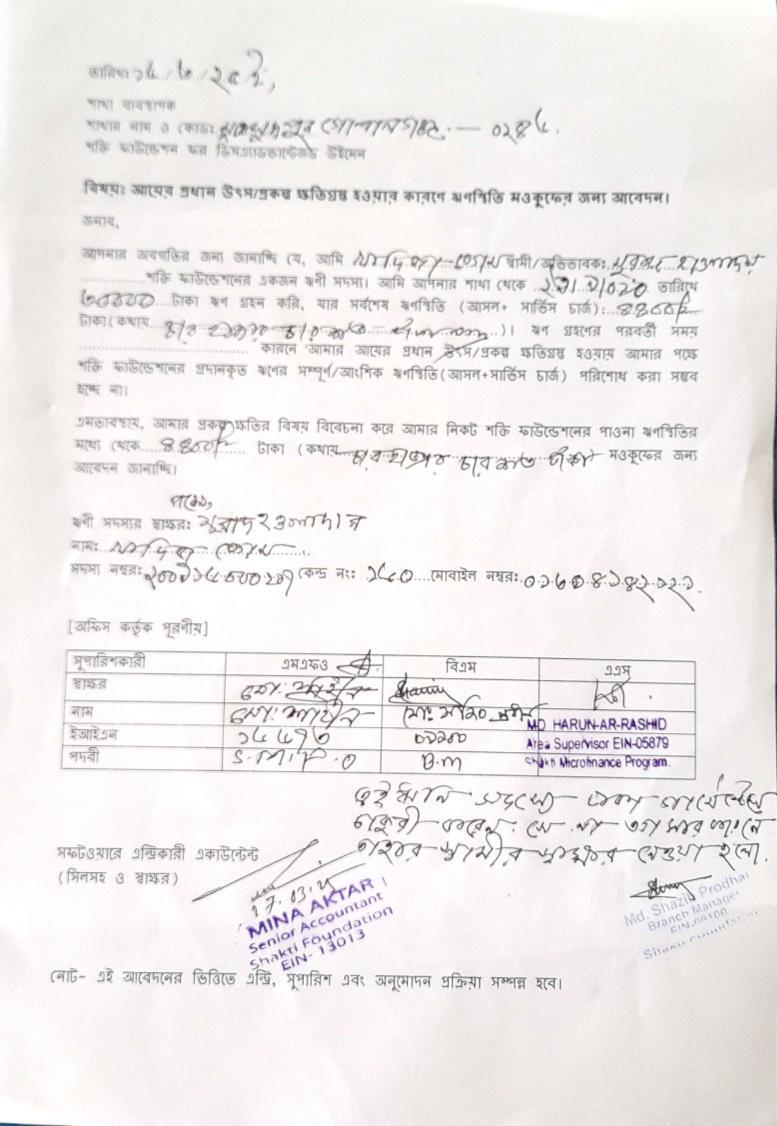 তারিখঃ
শাখা ব্যবস্থাপক
শাখার নাম ও কোডঃ গোপালগঞ্জ — ০২৪৮
শক্তি ফাউন্ডেশন ফর ডিসএ্যাডভান্টেজড উইমেন
বিষয়ঃ আয়ের প্রধান উৎস/প্রকল্প ক্ষতিগ্রস্থ হওয়ার কারণে ঋণস্থিতি মওকুফের জন্য আবেদন।
জনাব,
আপনার অবগতির জন্য জানাচ্ছি যে, আমি বেগম স্বামী/অভিভাবকঃ হাওলাদার
শক্তি ফাউন্ডেশনের একজন ঋণী সদস্য। আমি আপনার শাখা থেকে তারিখে
টাকা ঋণ গ্রহন করি, যার সর্বশেষ ঋণস্থিতি (আসল+ সার্ভিস চার্জ)ঃ ৪৪০০/-
টাকা(কথায় চার হাজার চার শত টাকা)। ঋণ গ্রহণের পরবর্তী সময়
কারনে আমার আয়ের প্রধান উৎস/প্রকল্প ক্ষতিগ্রস্থ হওয়ায় আমার পক্ষে
শক্তি ফাউন্ডেশনের প্রদানকৃত ঋণের সম্পূর্ণ/আংশিক ঋণস্থিতি(আসল+সার্ভিস চার্জ) পরিশোধ করা সম্ভব
হচ্ছে না।
এমতাবস্থায়, আমার প্রকল্প ক্ষতির বিষয় বিবেচনা করে আমার নিকট শক্তি ফাউন্ডেশনের পাওনা ঋণস্থিতির
মধ্যে থেকে ৪৪০০/- টাকা (কথায় চার হাজার চার শত টাকা মওকুফের জন্য
আবেদন জানাচ্ছি।
পক্ষে,
ঋণী সদস্যের স্বাক্ষরঃ মুরাদ হওলাদার
নামঃ বেগম
সদস্য নম্বরঃ কেন্দ্র নংঃ ১৮০ মোবাইল নম্বরঃ
[অফিস কর্তৃক পূরণীয়]
সুপারিশকারী এমএফও বিএম এএস
স্বাক্ষর
নাম মোঃ মোঃ MD HARUN-AR-RASHID
ইআইএন Area Supervisor EIN-05879
পদবী S.M.F.O B.M Shakti Microfinance Program.
এই ঋনি সদস্য গার্মেন্টসে
চাকুরী করেন। সে না আসার কারনে
তাহার স্বামীর স্বাক্ষর নেওয়া হলো।
সফটওয়ারে এন্ট্রিকারী একাউন্টেন্ট
(সিলসহ ও স্বাক্ষর)
17.03.25
MINA AKTAR
Senior Accountant
Shakti Foundation
EIN- 13013
Md. Shazib Prodhan
Branch Manager
নোট- এই আবেদনের ভিত্তিতে এন্ট্রি, সুপারিশ এবং অনুমোদন প্রক্রিয়া সম্পন্ন হবে।